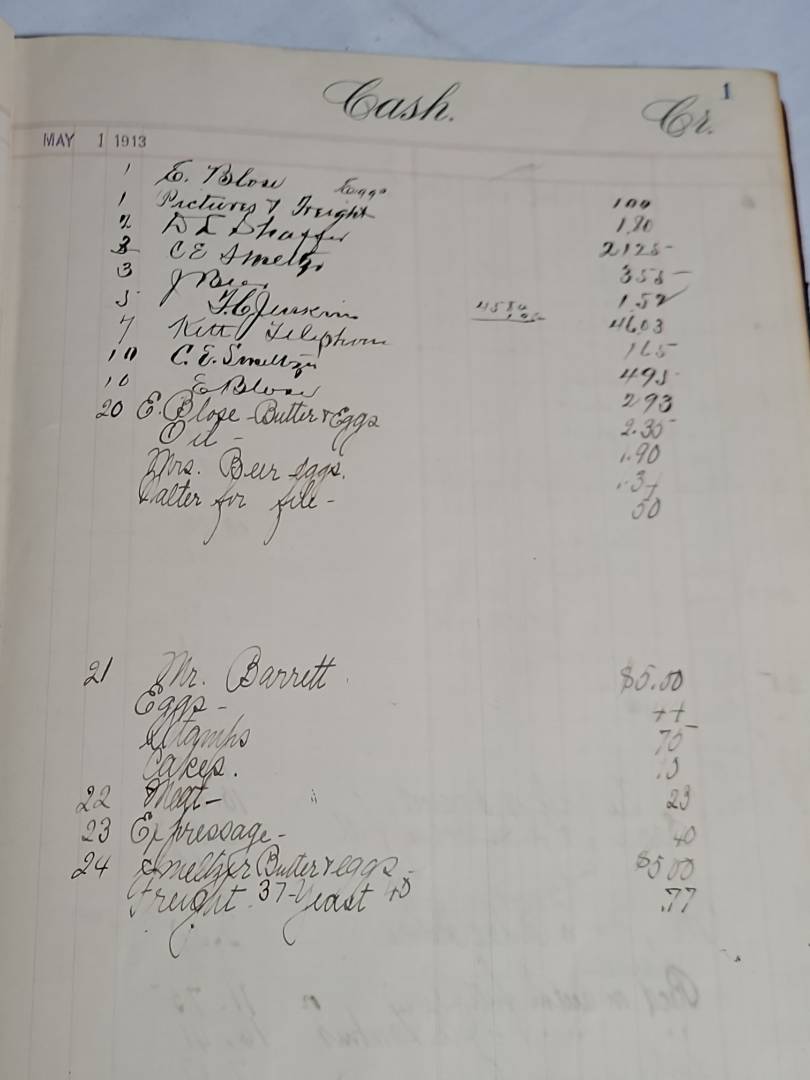 Cash. Cr. 1
MAY 1 1913
1 E. Blose Eggs 100
1 Pictures & Freight 1.20
2 D L Shaffer 2125
3 C E Smeltzer 355
3 J 1.52
5 F.C. Jenkins 4580 4603
7 Kitt Telephone 165
10 C.E. Smeltzer 495
10 E Blose 293
20 E. Blose - Butter & Eggs 2.35
Oil - 1.90
Mrs. Beer eggs. .34
Salter for file - 50
21 Mr. Barrett $5.00
Eggs - 44
Stamps 70
Cakes. 10
22 Meat - 23
23 Expressage - 40
24 Smeltzer Butter & eggs - $5.00
Freight 37 - Yeast 40 .77